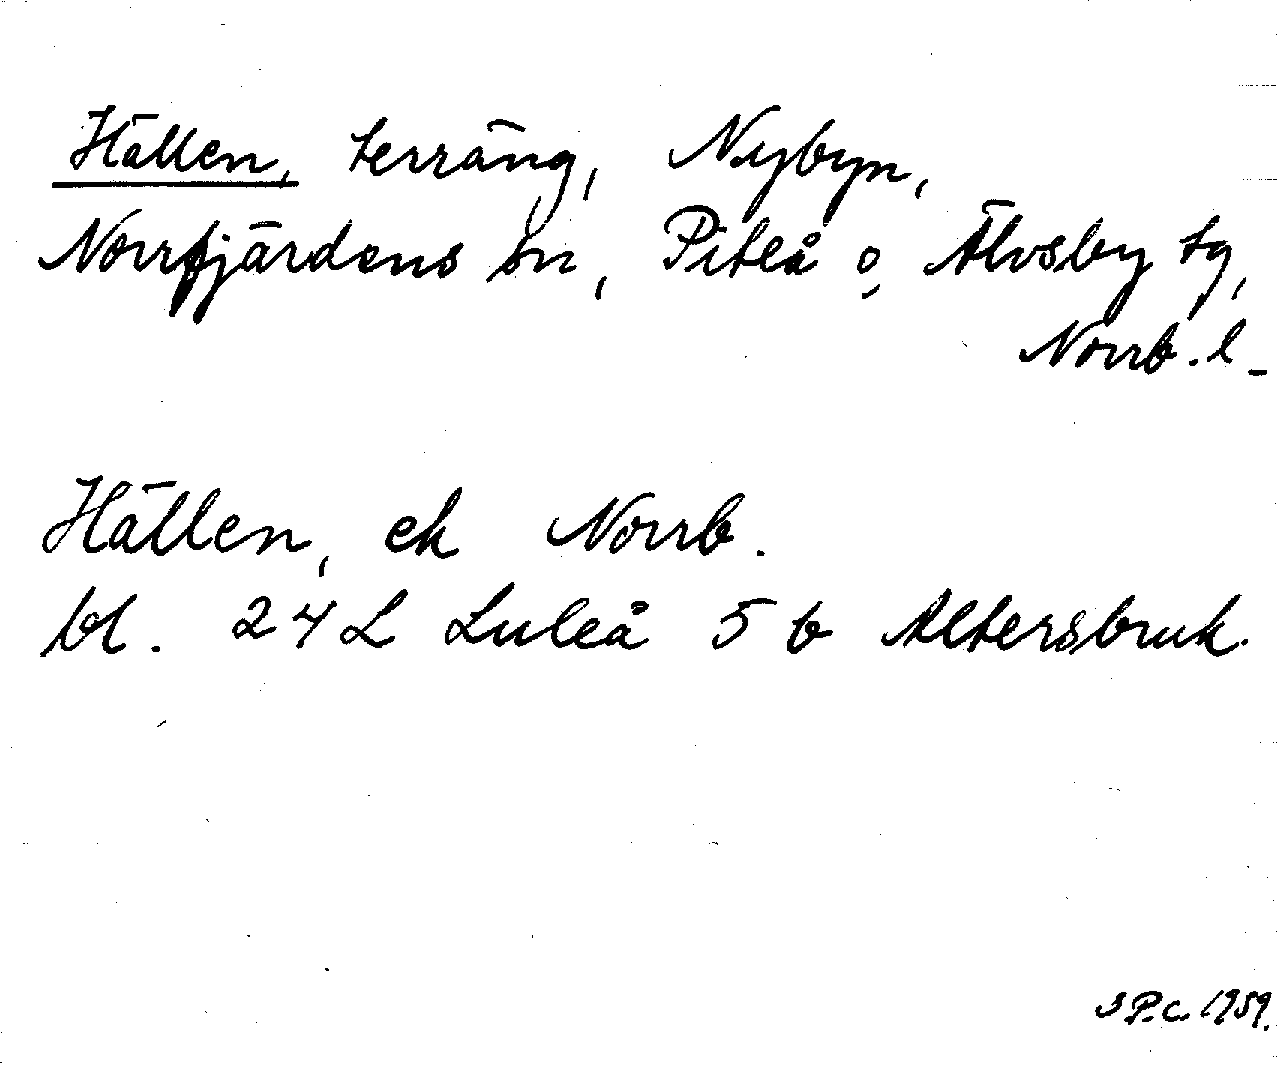 Hällen, terräng, Nybyn,
Norrfjärdens sn, Piteå o. Älvsby tg,
Norrb. l.
Hällen, ek Norrb.
bl. 24 L Luleå 5 b Altersbruk.
P.c. 1959.